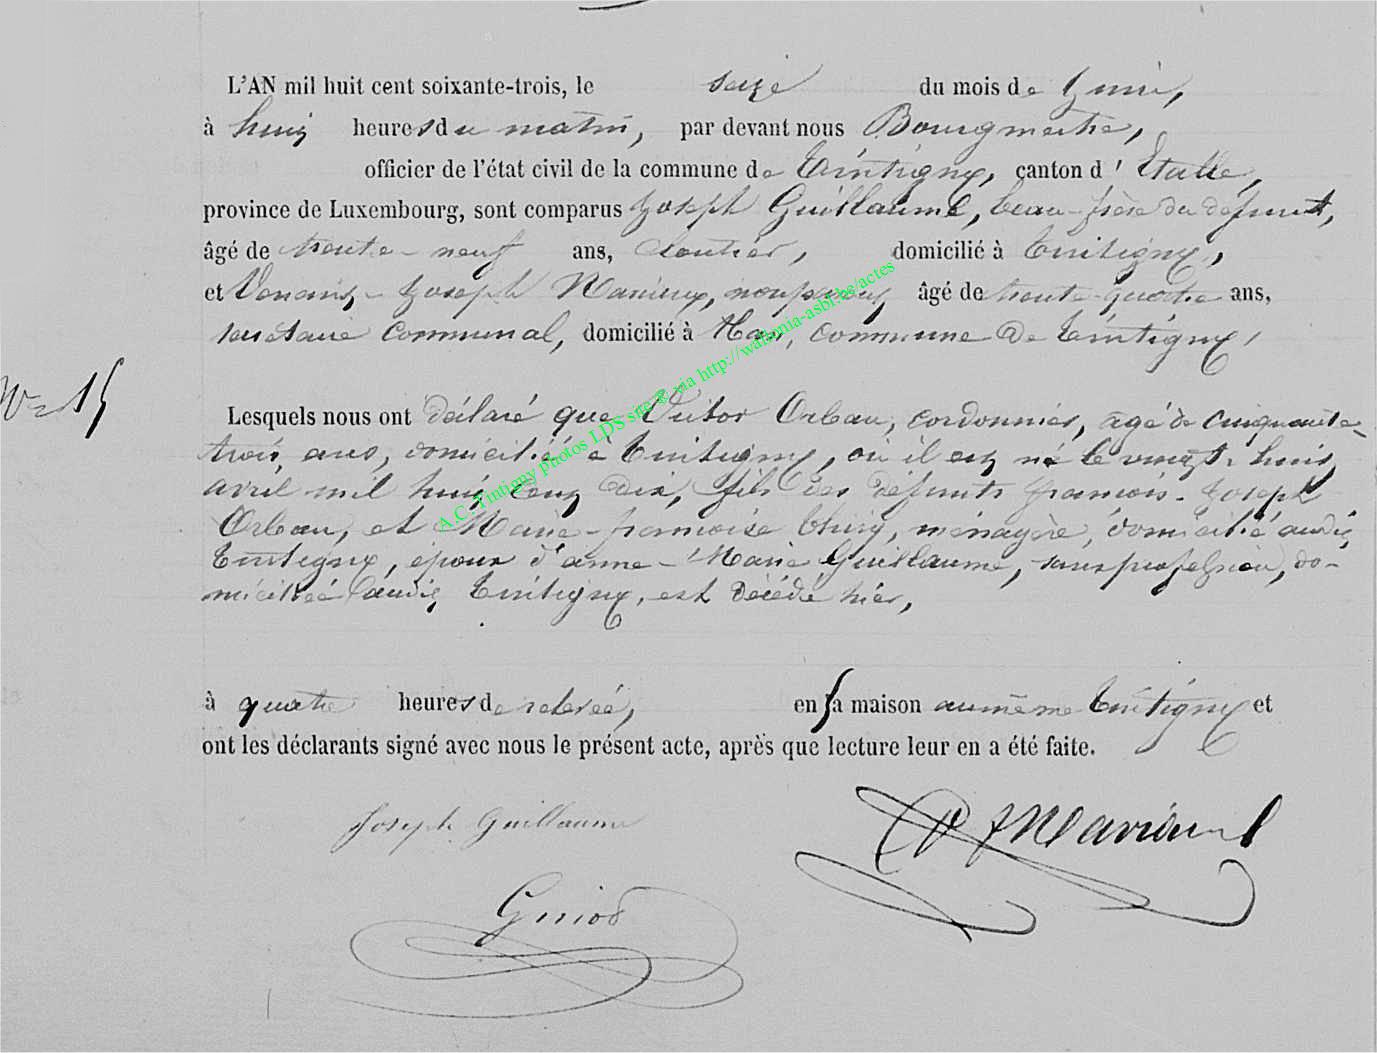 L'AN mil huit cent soixante-trois, le seize du mois de Juin,
à huit heures du matin, par devant nous Bourgmestre,
officier de l'état civil de la commune de Tintigny, canton d'Etalle,
province de Luxembourg, sont comparus Joseph Guillaume, beau-frère du défunt,
âgé de trente-neuf ans, cloutier, domicilié à Tintigny,
et Joseph âgé de trente-quatre ans,
secrétaire communal, domicilié à Han, commune de Tintigny,
No 15
Lesquels nous ont déclaré que Victor Orban, cordonnier, âgé de cinquante-
trois ans, domicilié à Tintigny, où il est né le vingt-huit
avril mil huit cent dix, fils des défunts françois-Joseph
Orban, et Marie-françoise ménagère, domicilié audit
Tintigny, epoux d'anne-Marie Guillaume, sans profession, do-
miciliée audit Tintigny, est décédé hier,
à quatre heures de relevée, en sa maison au même Tintigny et
ont les déclarants signé avec nous le présent acte, après que lecture leur en a été faite.
Joseph Guillaume
A.C. Tintigny photos LDS site & via http://wallonia-asbl.be/actes